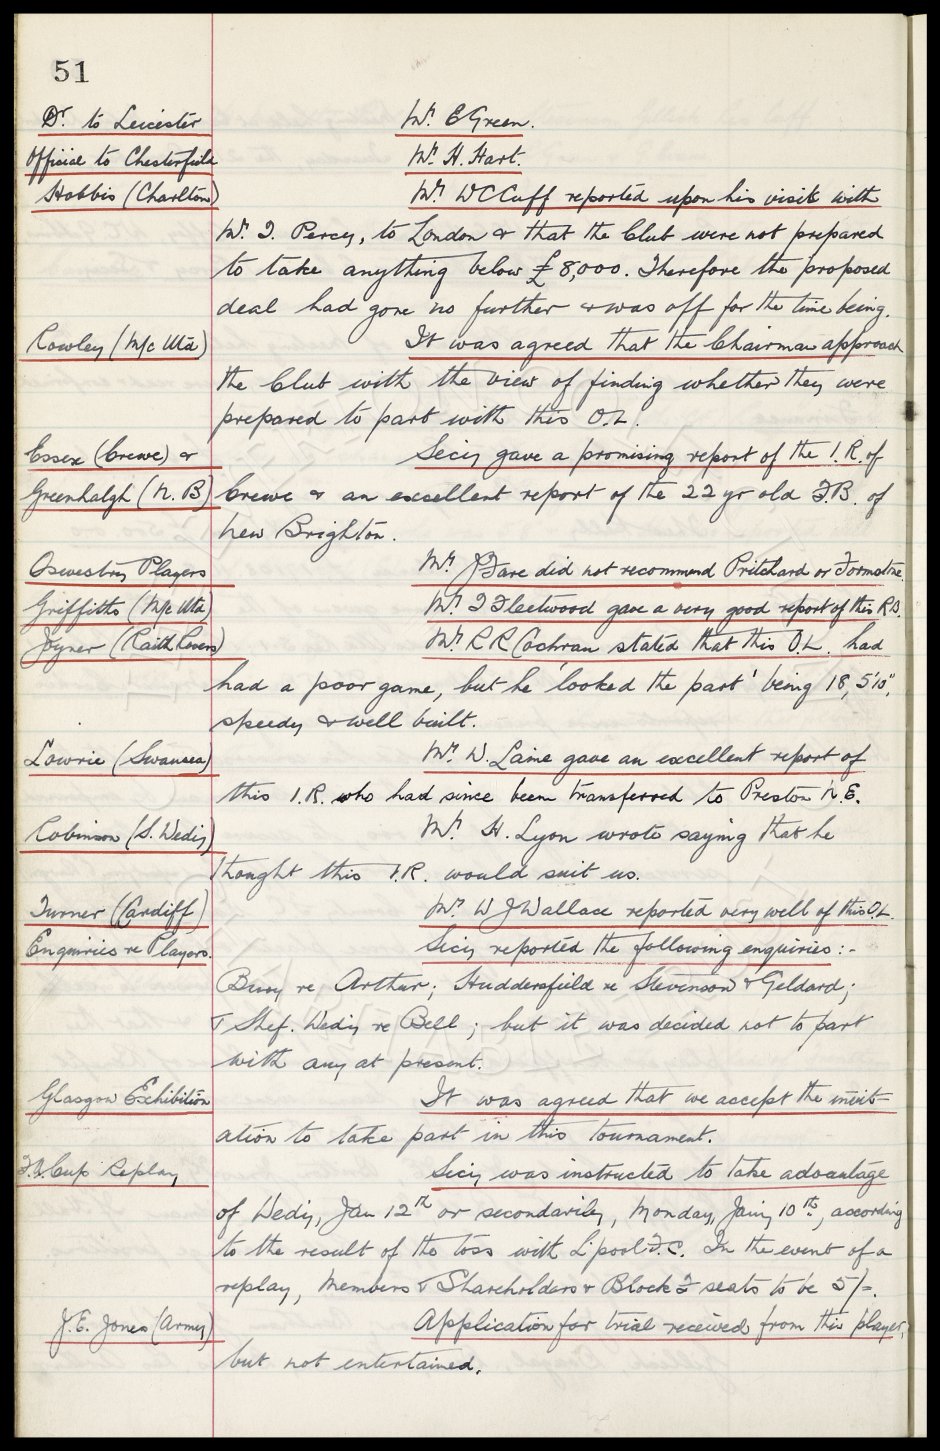 51
Dr. to Leicester Mr. E Green.
Official to Chesterfield Mr. H. Hart.
Hobbis (Charlton) Mr. W C Cuff reported upon his visit with
Mr. T. Percy, to London & that the Club were not prepared
to take anything below £8,000. Therefore the proposed
deal had gone no further & was off for the time being.
Rowley (M/c Utd) It was agreed that the Chairman approach
the Club with the view of finding whether they were
prepared to part with this O.L.
Essex (Crewe) & Secy gave a promising report of the I.R. of
Greenhalgh (N. B) Crewe & an excellent report of the 22 yr old F.B. of
New Brighton.
Oswestry Players Mr. J Fare did not recommend Pritchard or Formstone
Griffiths (M/c Utd) Mr. T Fleetwood gave a very good report of this R.B.
Joyner (Raith Rovers) Mr. R R Cochran stated that this O.L. had
had a poor game, but he 'looked the part' being 18, 5'10",
speedy & well built.
Lowrie (Swansea) Mr. W. Laine gave an excellent report of
this I.R. who had since been transferred to Preston N.E.
Robinson (S. Wedy) Mr. H. Lyon wrote saying that he
thought this I.R. would suit us.
Turner (Cardiff) Mr. W J Wallace reported very well of this O.L.
Enquiries re Players. Secy reported the following enquiries:-
Bury re Arthur; Huddersfield re Stevenson & Geldard;
& Shef. Wedy re Bell; but it was decided not to part
with any at present.
Glasgow Exhibition It was agreed that we accept the invit-
ation to take part in this tournament.
F.A. Cup Replay Secy was instructed to take advantage
of Wedy, Jan 12th or secondarily, Monday, Jany 10th, according
to the result of the toss with L'pool F.C. In the event of a
replay, Members & Shareholders & Block F seats to be 5/-.
J. E. Jones (Army) Application for trial received from this player,
but not entertained.